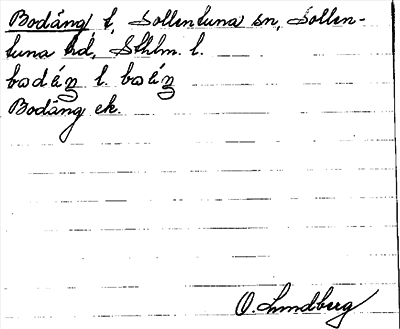 Bodäng t, Sollentuna sn, Sollen-
tuna hd, Sthlm. l.
Bodäng ek.
O. Lundberg